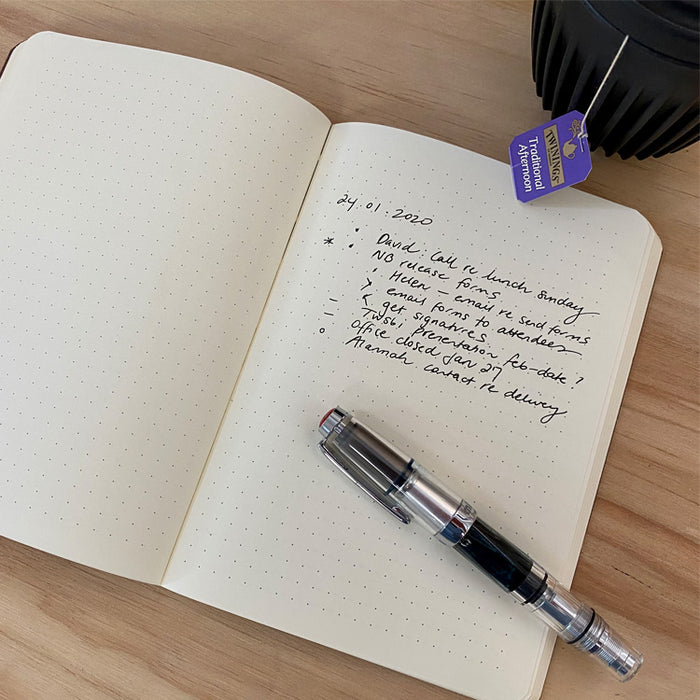 24.01.2020
• David. Call re lunch Sunday
* • NB release forms
• Helen – email re send forms
> email forms to attendees
< get signatures
– Twsbi presentation feb-date?
– Office closed Jan 27
o Alannah contact re delivery
TWININGS
Traditional
Afternoon